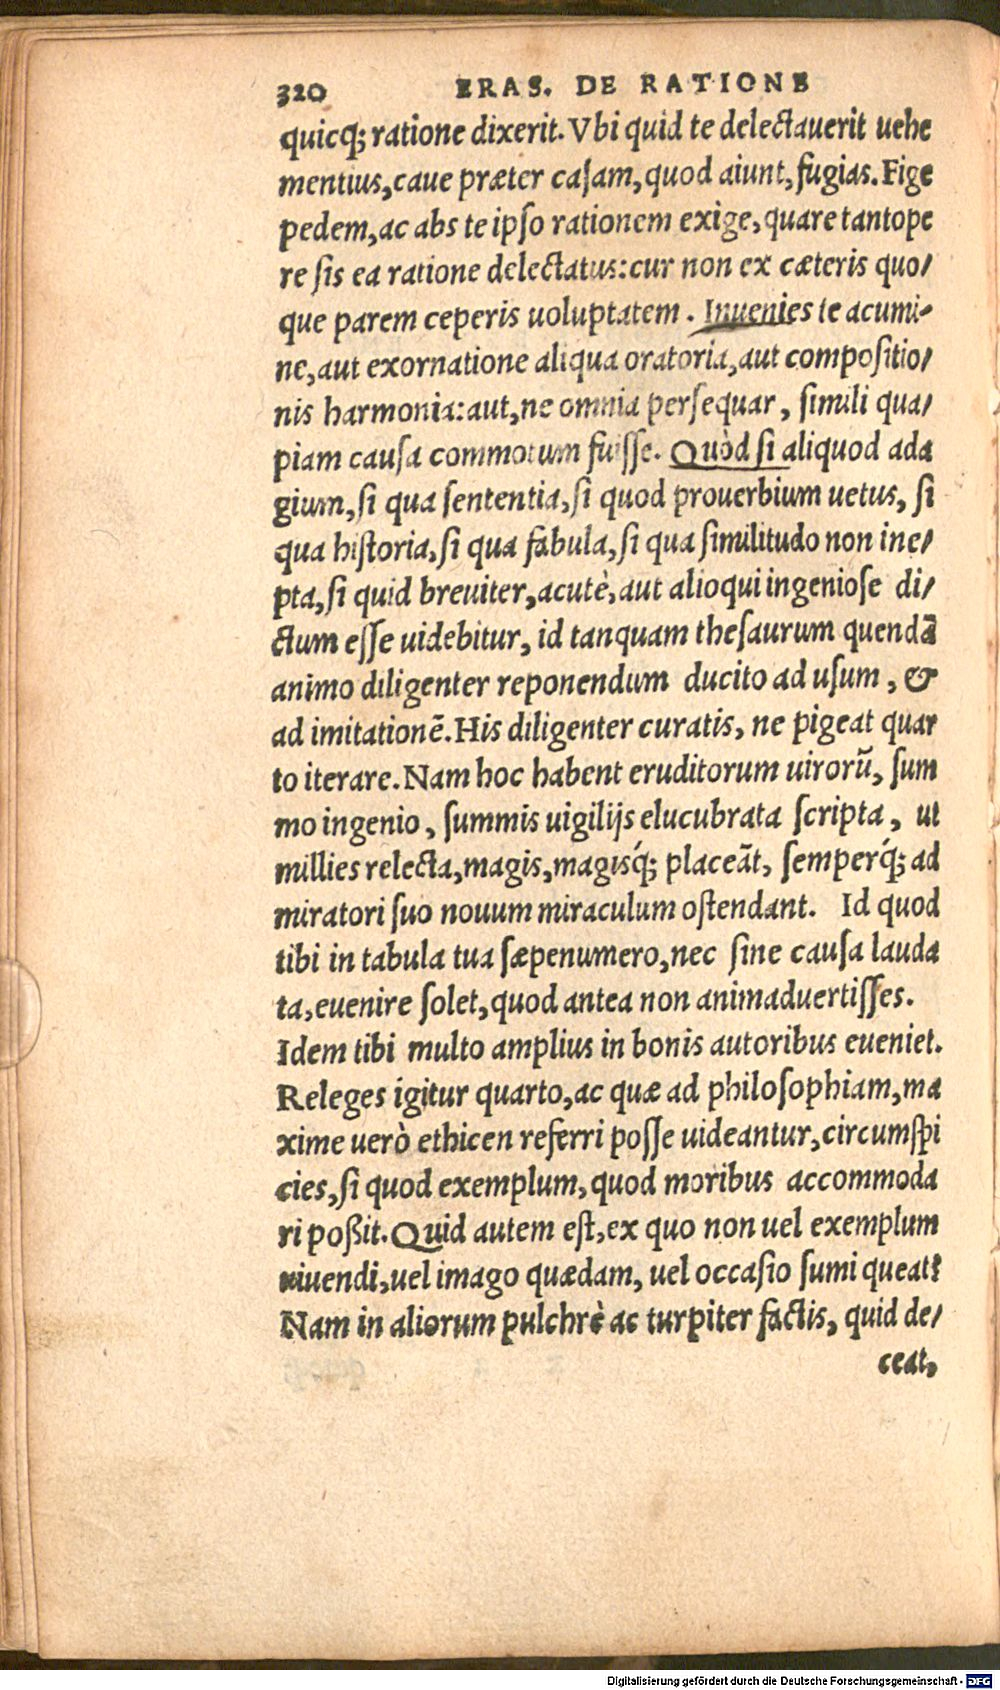 320 ERAS. DE RATIONE
quicq; ratione dixerit. Vbi quid te delectauerit uehe
mentius, caue præter casam, quod aiunt, fugias. Fige
pedem, ac abs te ipso rationem exige, quare tantope
re sis ea ratione delectatus: cur non ex cæteris quo/
que parem ceperis uoluptatem. Inuenies te acumi-
ne, aut exornatione aliqua oratoria, aut compositio/
nis harmonia: aut, ne omnia persequar, simili qua/
piam causa commotum fuisse. Quòd si aliquod ada
gium, si qua sententia, si quod prouerbium uetus, si
qua historia, si qua fabula, si qua similitudo non ine/
pta, si quid breuiter, acutè, aut alioqui ingeniose di/
ctum esse uidebitur, id tanquam thesaurum quendã
animo diligenter reponendum ducito ad usum, &
ad imitationẽ. His diligenter curatis, ne pigeat quar
to iterare. Nam hoc habent eruditorum uirorũ, sum
mo ingenio, summis uigilijs elucubrata scripta, ut
millies relecta, magis, magisq́; placeãt, semperq́; ad
miratori suo nouum miraculum ostendant. Id quod
tibi in tabula tua sæpenumero, nec sine causa lauda
ta, euenire solet, quod antea non animaduertisses.
Idem tibi multo amplius in bonis autoribus eueniet.
Releges igitur quarto, ac quæ ad philosophiam, ma
xime uerò ethicen referri posse uideantur, circumspi
cies, si quod exemplum, quod moribus accommoda
ri poßit. Quid autem est, ex quo non uel exemplum
uiuendi, uel imago quædam, uel occasio sumi queat?
Nam in aliorum pulchrè ac turpiter factis, quid de/
ceat,
Digitalisierung gefördert durch die Deutsche Forschungsgemeinschaft - DFG